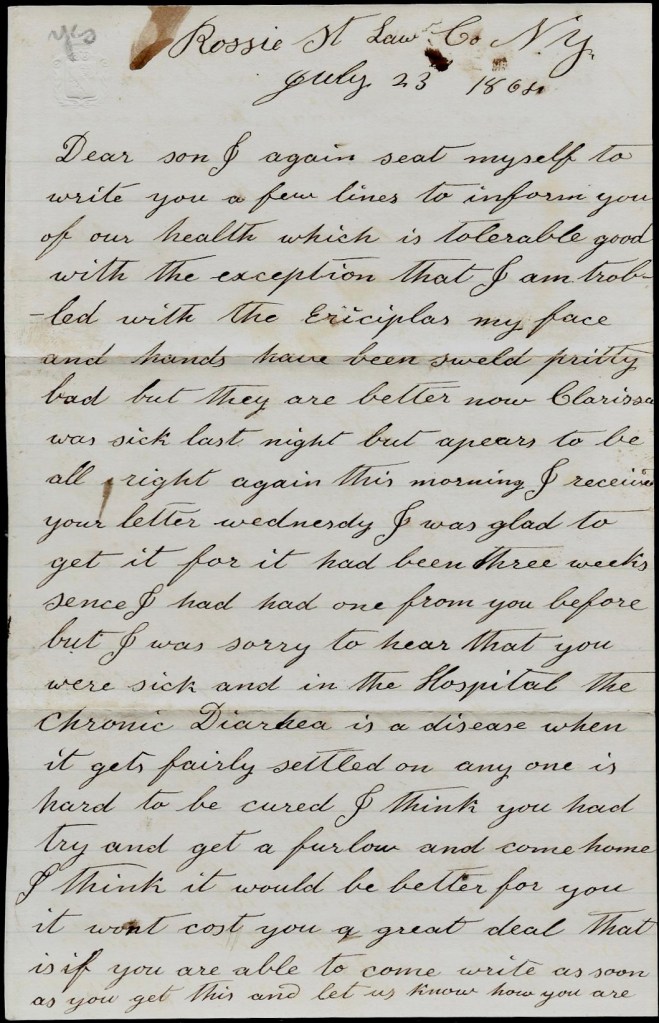 yes
Rossie St Lawr Co N.Y.
July 23 1864
Dear son I again seat myself to
write you a few lines to inform you
of our health which is tolerable good
with the exception that I am trob-
-led with the Ericiplas my face
and hands have been sweld pritty
bad but they are better now Clarissa
was sick last night but apears to be
all right again this morning I received
your letter wednesdy I was glad to
get it for it had been three weeks
sence I had had one from you before
but I was sorry to hear that you
were sick and in the Hospital the
Chronic Diarhea is a disease when
it gets fairly settled on any one is
hard to be cured I think you had
try and get a furlow and come home
I think it would be better for you
it wont cost you a great deal that
is if you are able to come write as soon
as you get this and let us know how you are